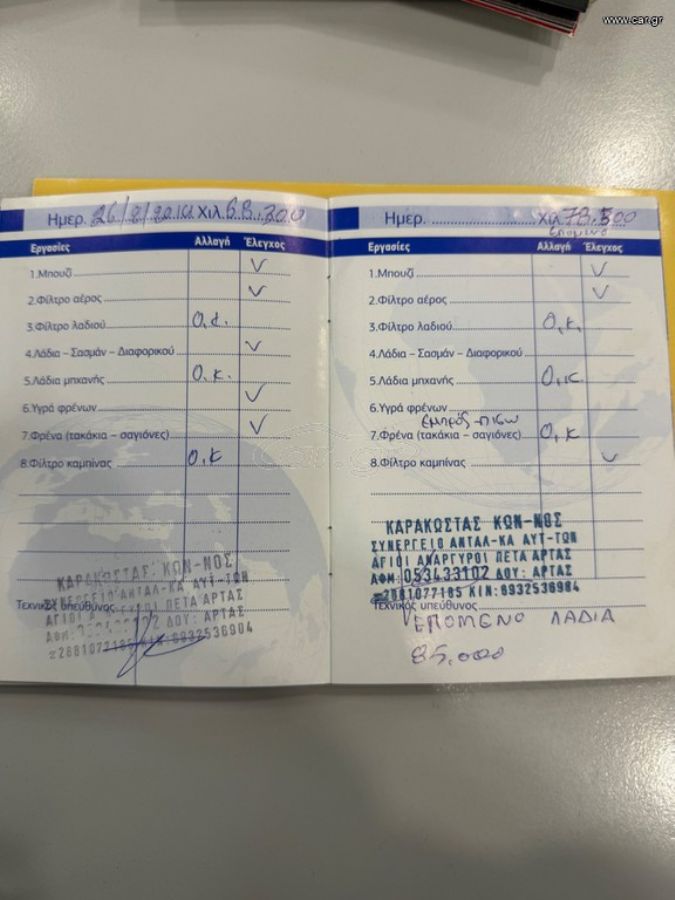 www.car.gr
Ημερ. 26/8/2014 Χιλ. 68.300
Εργασίες Αλλαγή Έλεγχος
1.Μπουζί ✓
2.Φίλτρο αέρος ✓
3.Φίλτρο λαδιού O.K.
4.Λάδια – Σασμάν – Διαφορικού ✓
5.Λάδια μηχανής O.K.
6.Υγρά φρένων ✓
7.Φρένα (τακάκια – σαγιόνες) ✓
8.Φίλτρο καμπίνας O.K
ΚΑΡΑΚΩΣΤΑΣ ΚΩΝ-ΝΟΣ
ΣΥΝΕΡΓΕΙΟ ΑΝΤΑΛ-ΚΑ ΑΥΤ-ΤΩΝ
Τεχνικός υπεύθυνος
ΑΓΙΟΙ ΑΝΑΡΓΥΡΟΙ ΠΕΤΑ ΑΡΤΑΣ
ΑΦΜ: ΔΟΥ: ΑΡΤΑΣ
2681077185 ΚΙΝ: 6932536984
Ημερ. Χιλ. 78.500
επομενο
Εργασίες Αλλαγή Έλεγχος
1.Μπουζί ✓
2.Φίλτρο αέρος ✓
3.Φίλτρο λαδιού O.K.
4.Λάδια – Σασμάν – Διαφορικού
5.Λάδια μηχανής O.K.
6.Υγρά φρένων
εμπρός-πίσω
7.Φρένα (τακάκια – σαγιόνες) O.K
8.Φίλτρο καμπίνας ✓
ΚΑΡΑΚΩΣΤΑΣ ΚΩΝ-ΝΟΣ
ΣΥΝΕΡΓΕΙΟ ΑΝΤΑΛ-ΚΑ ΑΥΤ-ΤΩΝ
ΑΓΙΟΙ ΑΝΑΡΓΥΡΟΙ ΠΕΤΑ ΑΡΤΑΣ
ΑΦΜ: 053433102 ΔΟΥ: ΑΡΤΑΣ
2681077185 ΚΙΝ: 6932536984
Τεχνικός υπεύθυνος
ΕΠΟΜΕΝΟ ΛΑΔΙΑ
85.000
car.gr